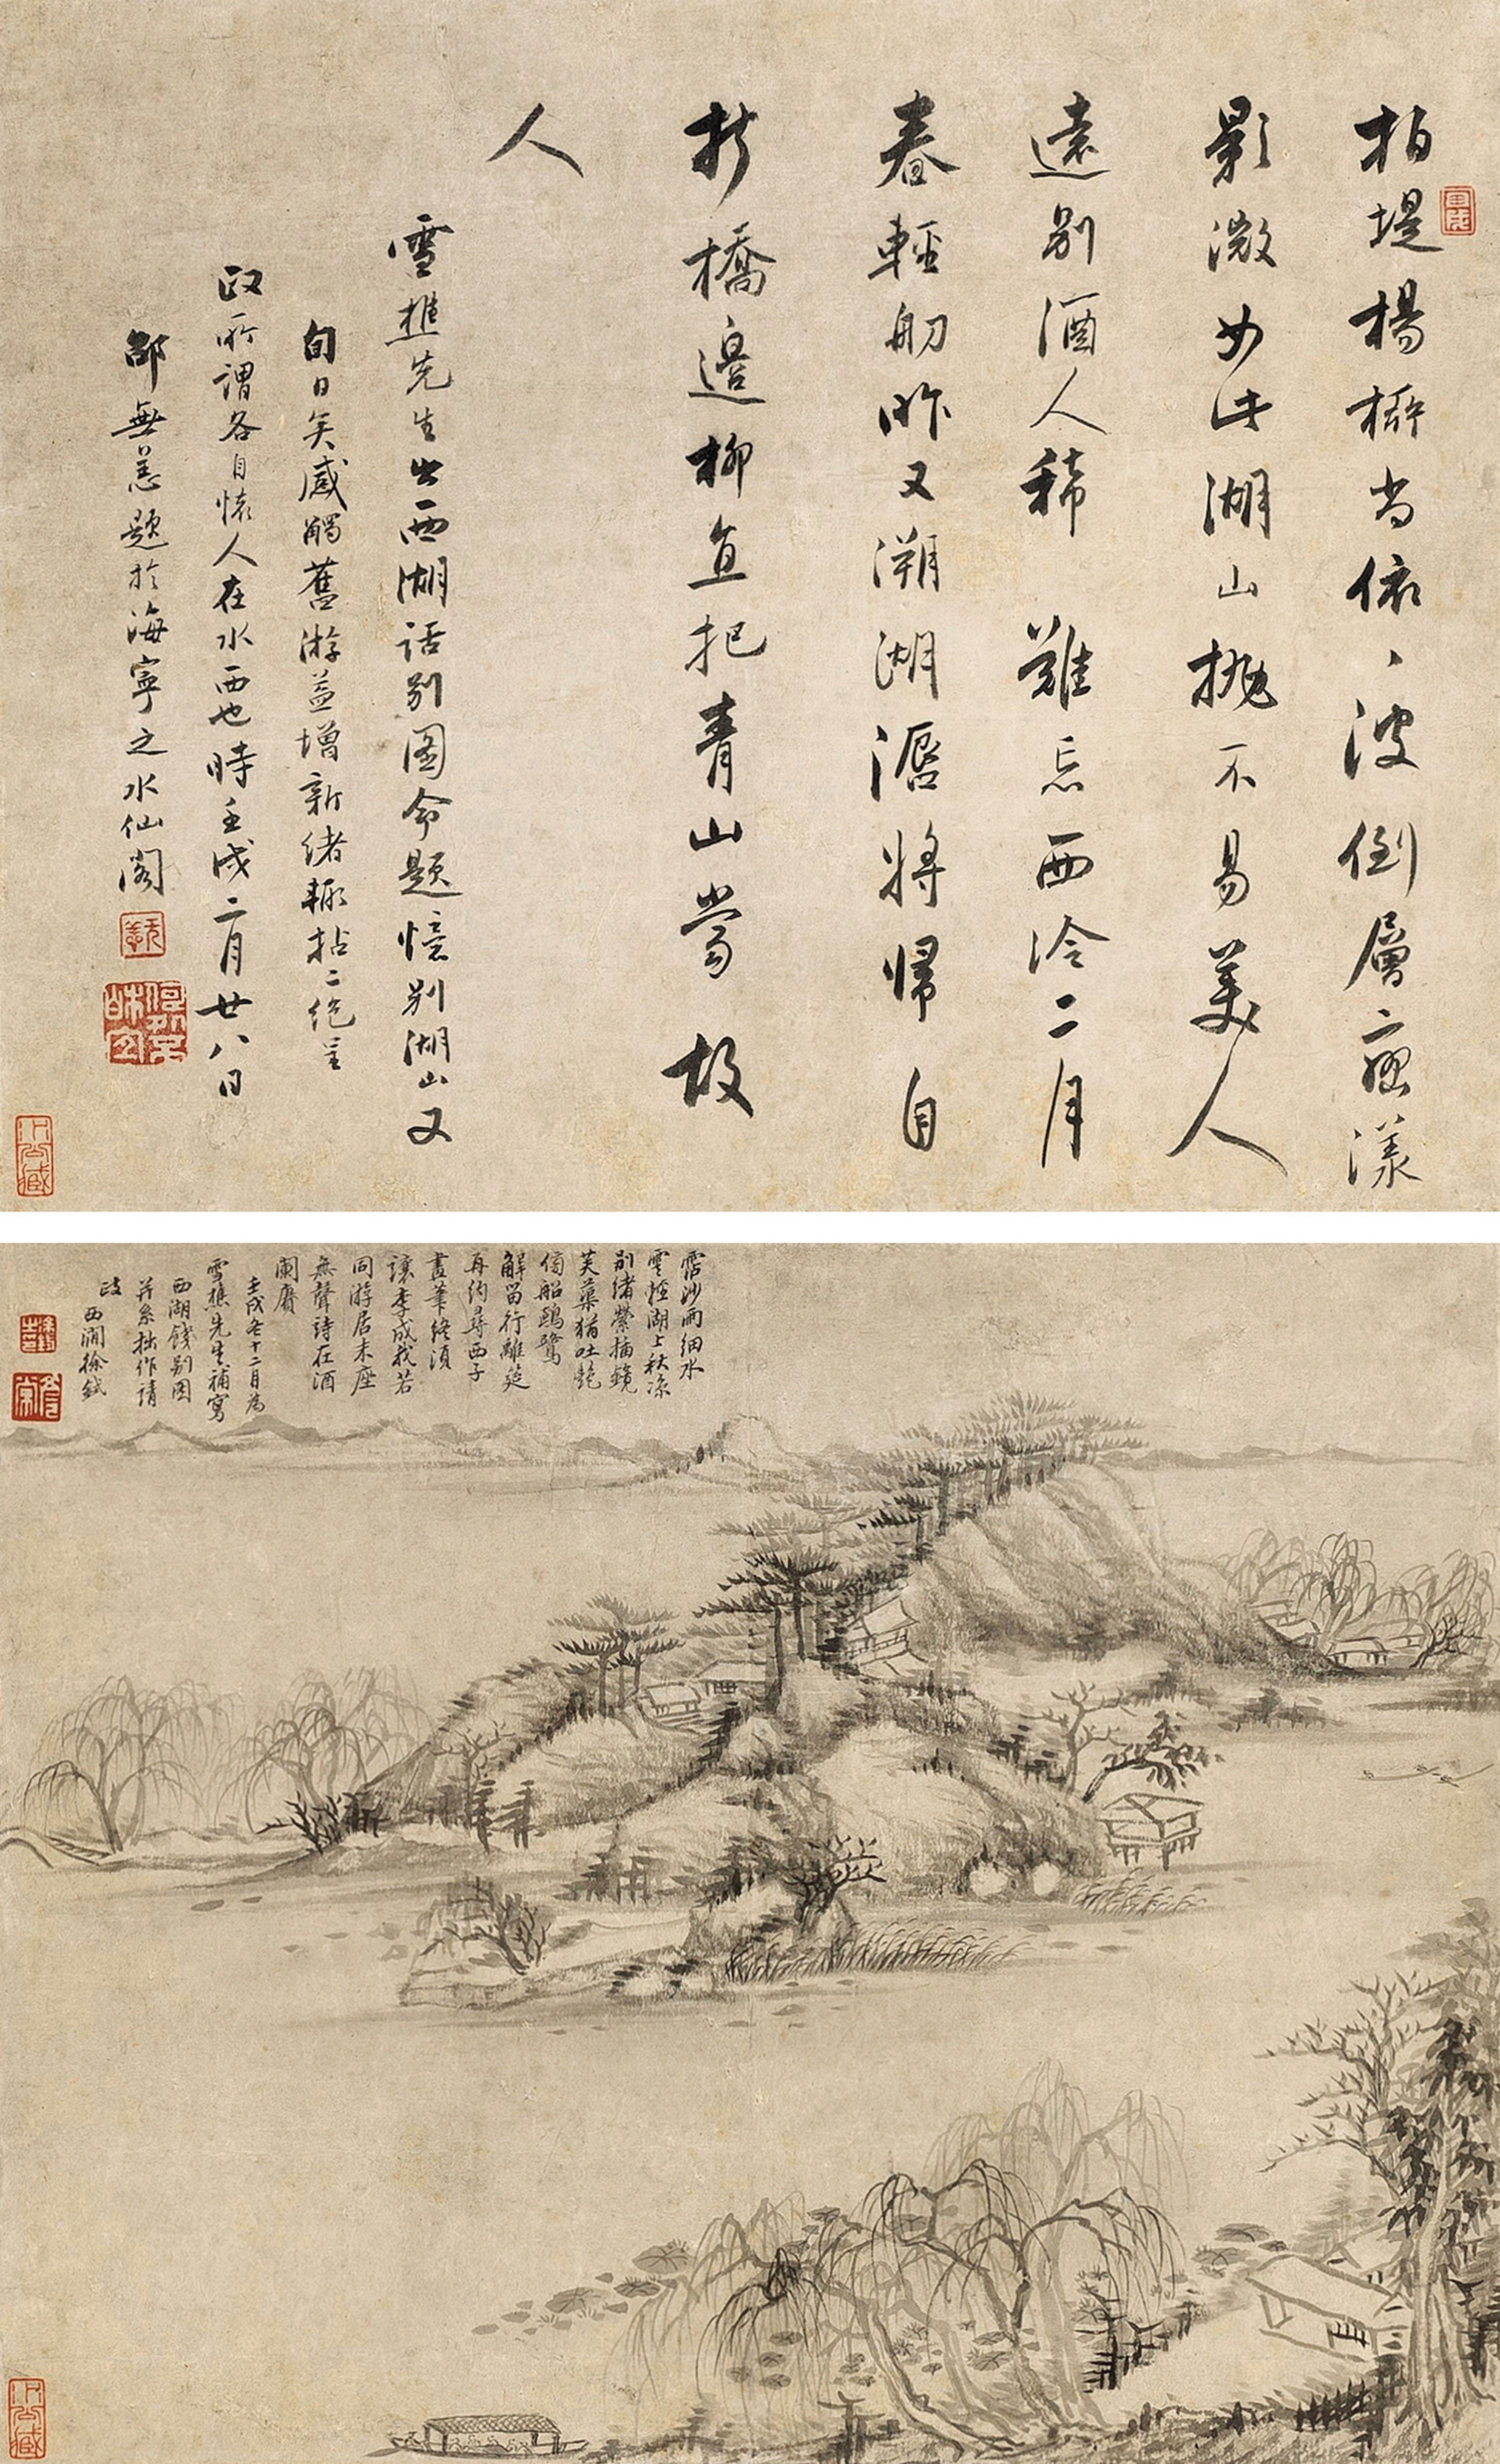 拍堤楊柳尚依、波倒層層漾
影微如此湖山拋不易美人
遠別酒人稀　難忘西泠二月
春輕舠昨又溯湖漘將歸自
折橋邊柳直把青山當故
人
雪樵先生出西湖話別圖命題憶別湖山又
旬日矣感觸舊游益增新緒輒拈二絕呈
政所謂各自懷人在水西也時壬戌二月廿八日
邵無恙題於海寧之水仙閣
無恙
露沙雨細水
雲輕湖上秋涼
別緒縈描鏡
芙蕖猶吐艷
傍船鷗鷺
解留行離筵
再約尋西子
畫筆終須
讓李成我若
同游居末座
無聲詩在酒
闌賡
壬戌冬十二月為
雪樵先生補寫
西湖餞別圖
并系拙作請
政
西澗徐鉽